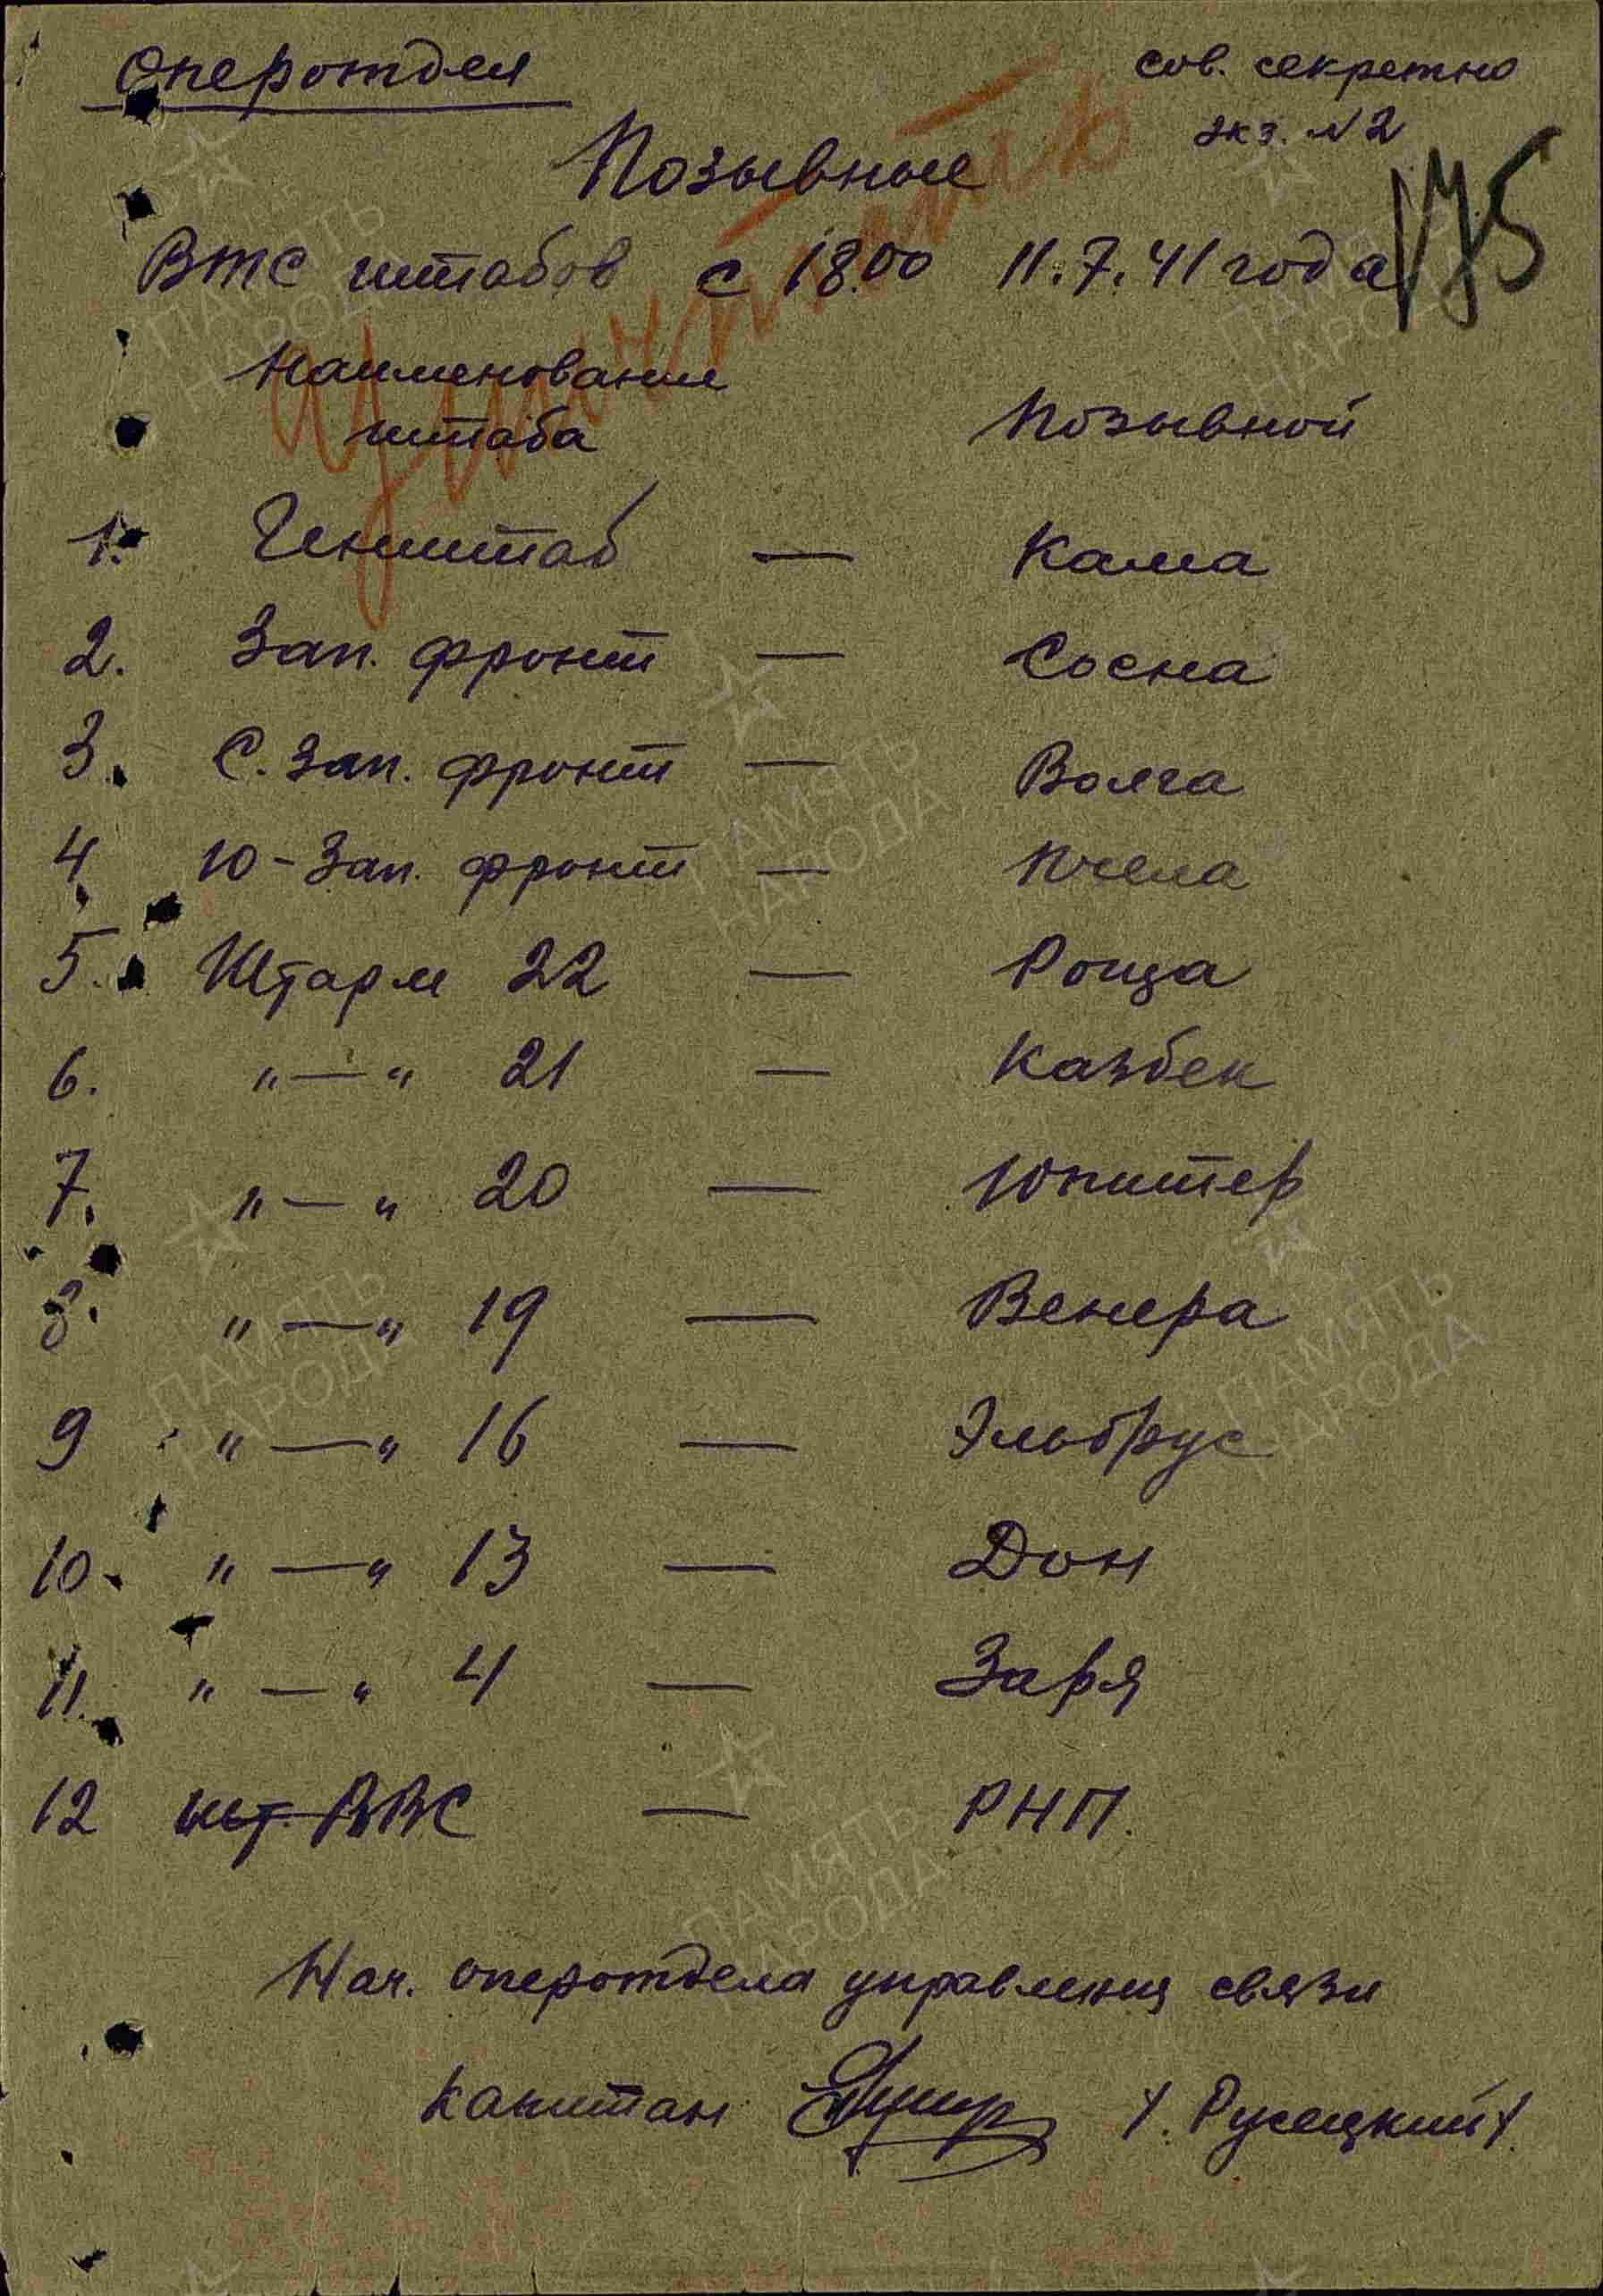 Оперотдел
сов. секретно
экз. № 2
Позывные
175
ВТС штабов с 18.00 11.7.41 года
Наименование
штаба
Позывной
1. Генштаб — Кама
2. Зап. фронт — Сосна
3. С. Зап. фронт — Волга
4. Ю-Зап. фронт — Пчела
5. Штарм 22 — Роща
6. "—" 21 — Казбек
7. "—" 20 — Юпитер
8. "—" 19 — Венера
9 "—" 16 — Эльбрус
10. "—" 13 — Дон
11. "—" 4 — Заря
12 шт. ВВС — РНП.
Нач. оперотдела управления связи
капитан /. Русецкий/.
ПАМЯТЬ
НАРОДА